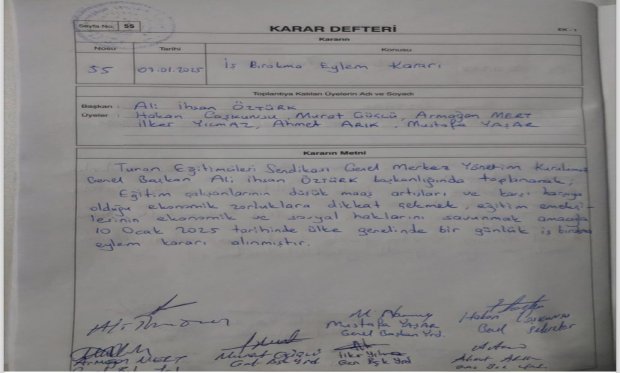 Sayfa No: 55
KARAR DEFTERİ
EK - 1
Kararın
Nosu Tarihi Konusu
55 09.01.2025 İş Bırakma Eylem Kararı
Toplantıya Katılan Üyelerin Adı ve Soyadı
Başkan : Ali İhsan ÖZTÜRK
Üyeler : Hakan Coşkunsu, Murat GÜÇLÜ, Armağan MERT
İlker YILMAZ, Ahmet ARIK, Mustafa YAŞAR
Kararın Metni
Turan Eğitimcileri Sendikası Genel Merkez Yönetim Kurulumuz
Genel Başkan Ali İhsan ÖZTÜRK başkanlığında toplanarak;
Eğitim çalışanlarının düşük maaş artışları ve karşı karşıya
olduğu ekonomik zorluklara dikkat çekmek, eğitim emekçi-
lerinin ekonomik ve sosyal haklarını savunmak amacıyla
10 Ocak 2025 tarihinde ülke genelinde bir günlük iş bırakma
eylem kararı alınmıştır.
Mustafa YAŞAR
Genel Başkan Yrd.
Hakan
Genel Sekreter
Armağan MERT
Murat GÜÇLÜ
İlker Yılmaz